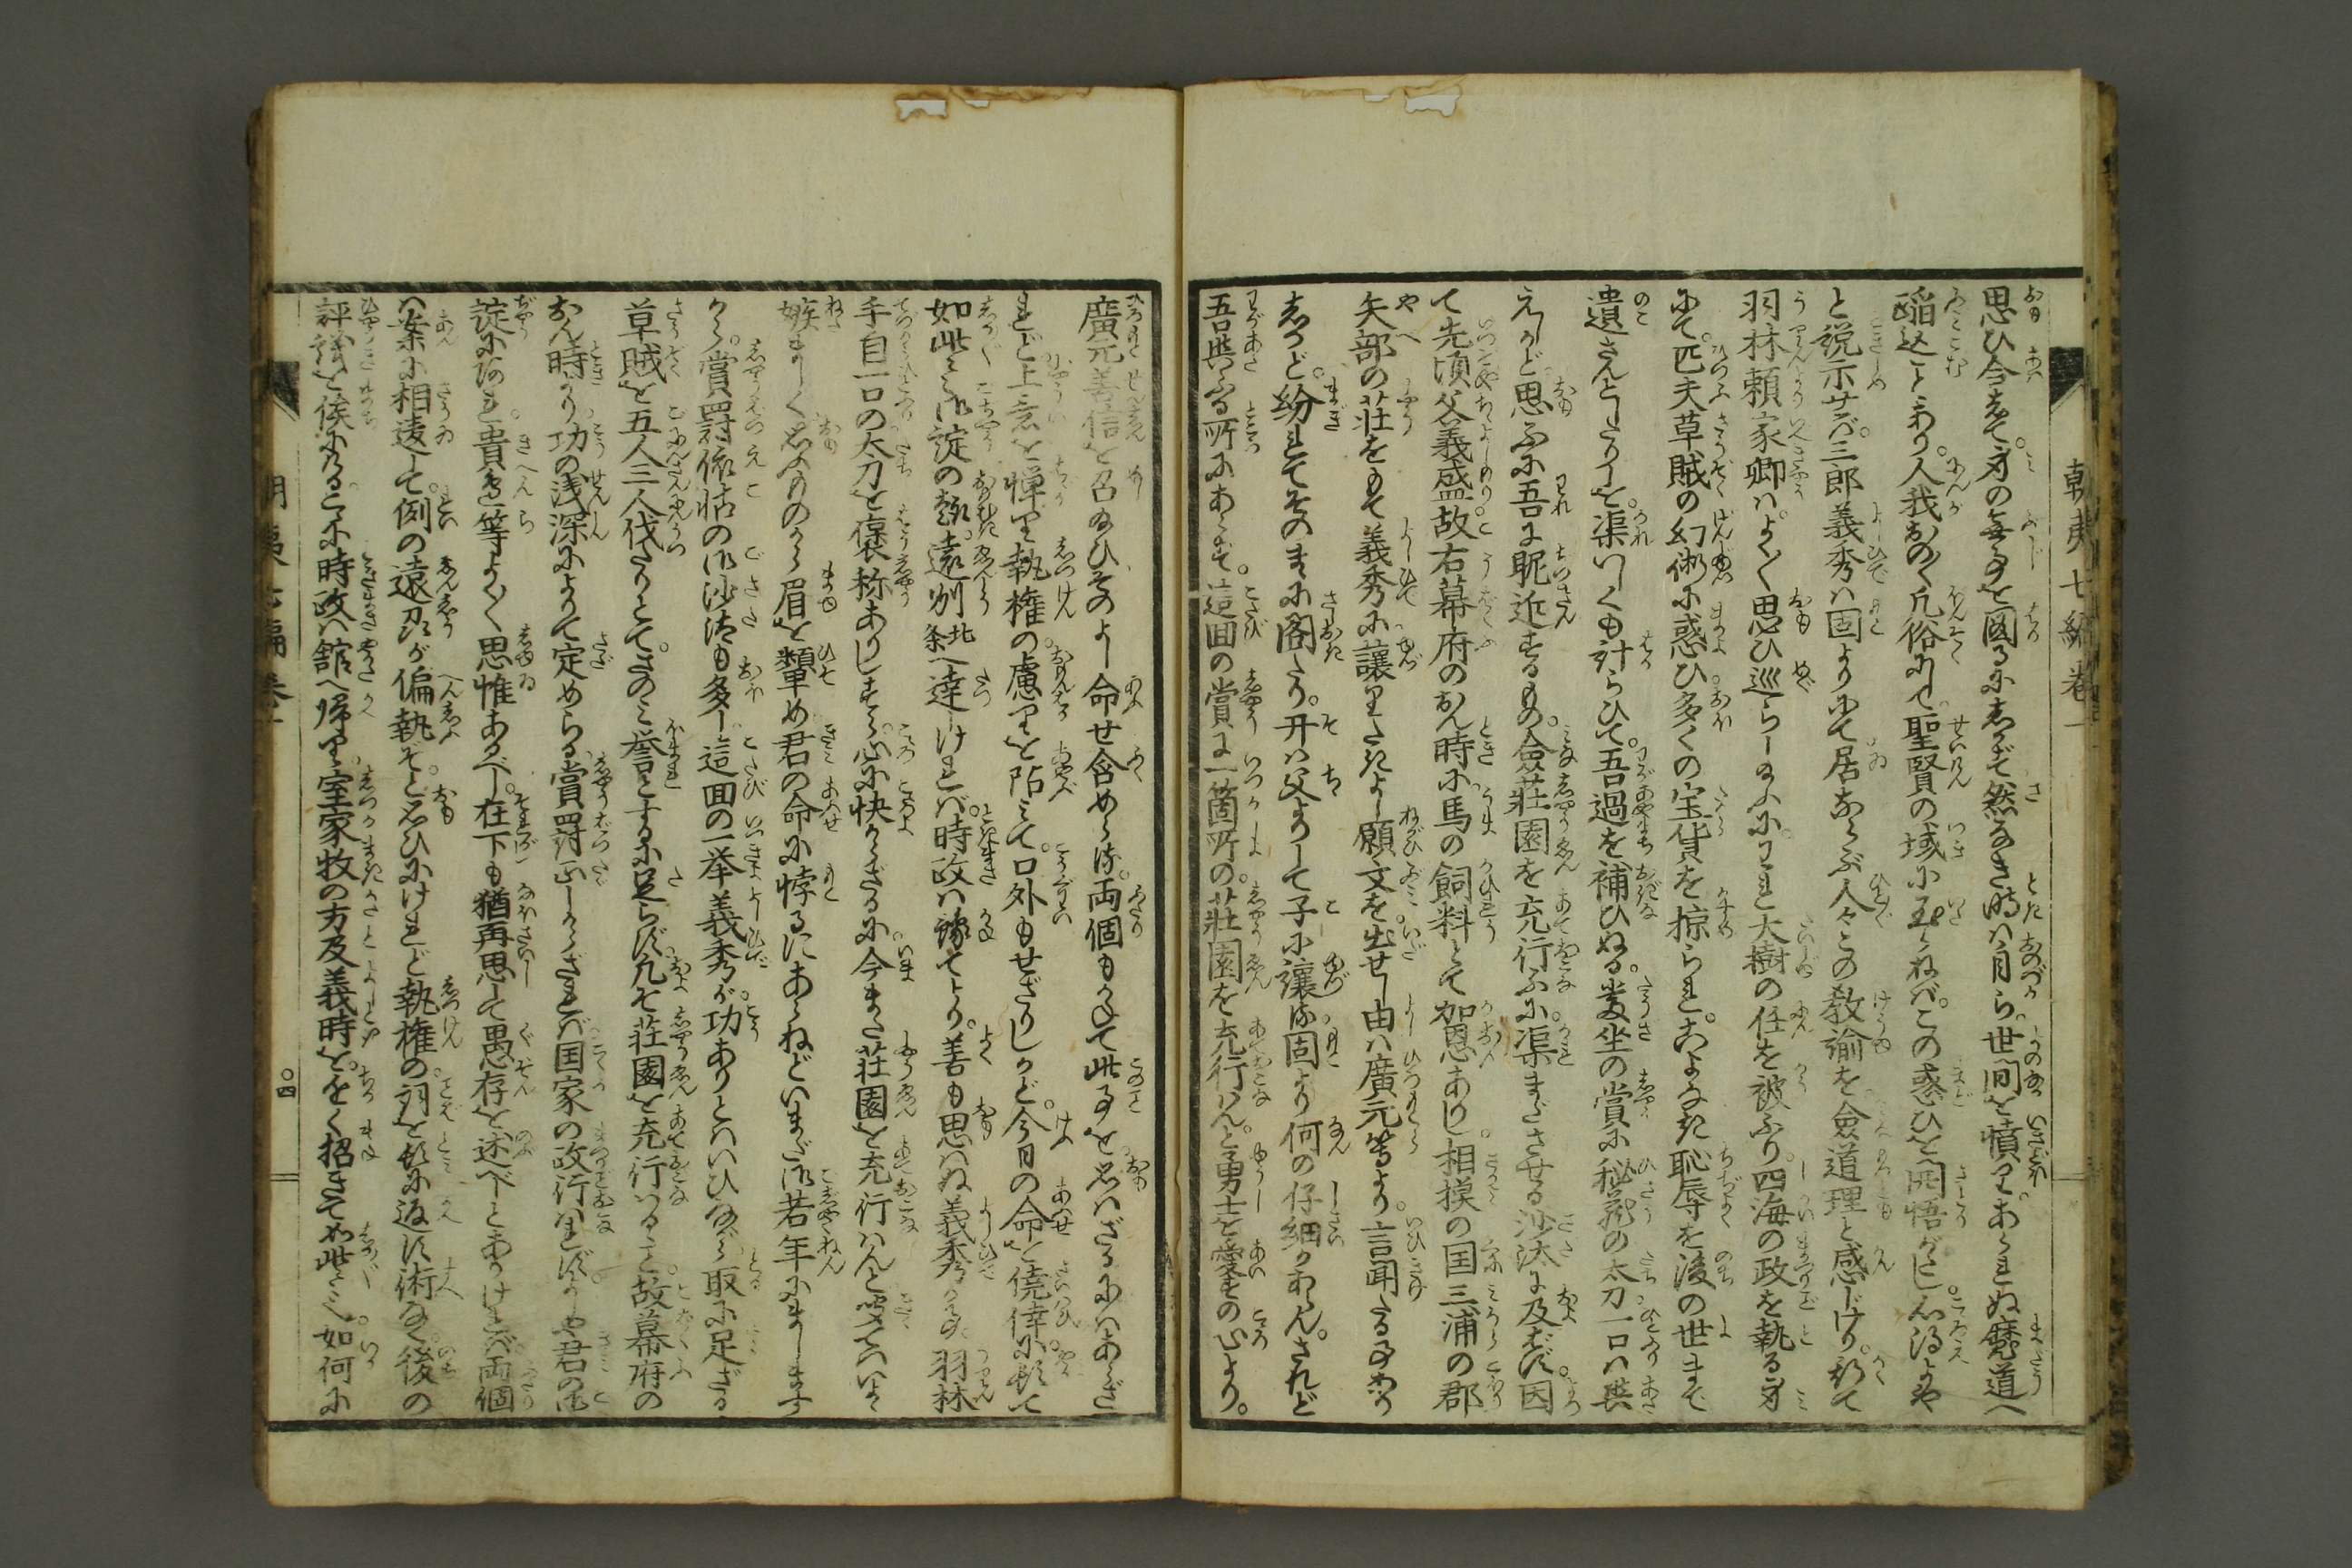 朝夷七編巻一
思ひ合して。身の毎事を図るにあらず然るとき時ハ自ら。世間を憤りあられぬ魔道へ
陥込とあり。人我おのく凡俗にて。聖賢の域に至らねバ。この惑ひを開悟がたし。心得よや
と説示せバ。三郎義秀ハ固よりにて居ならぶ人々との教諭を僉道理と感じけり。却て
羽林頼家卿ハ。よくよく思ひ巡らし給ふに。われ大樹の任を被ふり。四海の政を執る身
にて。匹夫草賊の幻術に惑ひ。多くの宝貨を掠られ。こよなき恥辱を後の世まで
遺さんとしたりしを。渠いしくも計らひて。吾過を補ひぬる。当坐の賞に秘蔵の太刀一口ハ与
えしかど。思ふに吾に昵近するもの。僉荘園を充行ふに。渠まださせる沙汰に及ばず。因
て先頃父義盛。故右幕府のおん時に。馬の飼料とて加恩ありし。相摸の国三浦の郡
矢部の荘をもて義秀に譲りたきよし願文を。出せし由ハ廣元等より。言聞たる事あり
しかど。紛れてそのまに閣たり。开ハ父よりして子に譲る。固より何の仔細かあらん。されど
吾与ふる所にあらず。這回の賞に一箇所の。荘園を充行はん。と勇士を愛るの心より。
廣元善信を召給ひそのよし命せ含めらる。両個もかねて此事を思ハざるにハあらざ
れど上意を憚り執権の。慮りを陷ミて。口外もせざりしかど。今日の命を僥倖に頓て
如此々々御諚の趣。遠州北条へ達しけれバ。時政ハ豫てより。善も思ハぬ義秀なるを。羽林
手自一口の太刀を褒称ありしすら。心に快からざるに。今また荘園を充行はんと聞てハいよ
嫉ましく思ふものから眉を顰め君の命に悖るにあらねどいまだ御若年にましませす
から。賞罸依怙の御沙汰も多し。這回の一挙義秀が。功ありとハいひながら取に足ざる
草賊を五人三人伐たりとて。さのミ誉とするに足らず。凡そ荘園を充行ハるゝ。故幕府の
おん時より。功の浅深によりて定めらる。賞罸正しからざれバ国家の政行ハれず。よしや君の御
諚にあれ。貴邉等よくよく思惟あるべし。在下も猶再思して愚存を述べしとありけれバ両個
ハ案に相違して。例の遠州が偏執ぞと思ひにけれど執権の。詞を頓に返す術なく。後の
評議を俟にける。こゝに時政ハ舘へ帰り。室家牧の方及義時を。とく招きて如此々々。如何に
朝夷七編巻一
〇四